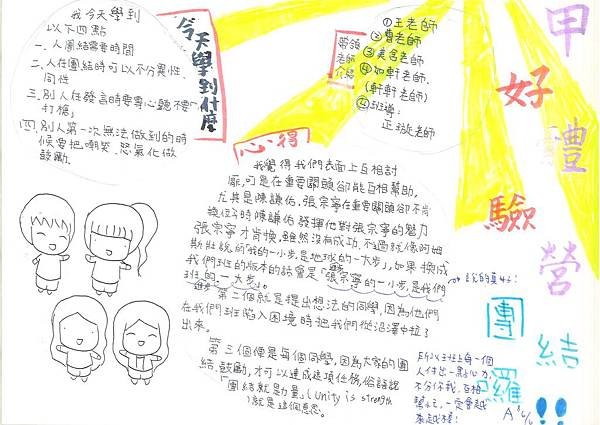 我今天學到
以下四點
一、人團結需要時間
二、人在團結時可以不分異性、
同性
三、別人在發言時要專心聽不要
「打槍」
四、別人第一次無法做到的時
候要把嘲笑、怒氣化做
鼓勵。
今天學到什麼
帶領
老師
介紹
①王老師
②曾老師
③美宮老師
④如軒老師.
(軒軒老師)
班導:
正璇老師
甲
好
禮
驗
營
團
結
囉
!!
心得
我覺得我們表面上互相討
厭,可是在重要關頭卻能互相幫助,
尤其是陳謙佑、張宗寧在重要關頭卻不肯
換位子時陳謙佑發揮他對張宗寧的魅力
張宗寧才肯換,雖然沒有成功,不過就像阿姆
斯壯說的「我的一小步,是地球的一大步」,如果換成
我們班的版本的話會是「張宗寧的一小步,是我們
班的一大步」。
進步
第二個就是提出想法的同學,因為他們
在我們班陷入困境時把我們從沼澤中拉了
出來。
第三個像是每個同學,因為大家的團
結、鼓勵,才可以達成這項任務,俗話說
「團結就是力量」(Unity is strength
)就是這個意思。
說的真好!
所以班上每一個
人付出一點心力,
不分你我,互相
幫忙,一定會越
來越棒!